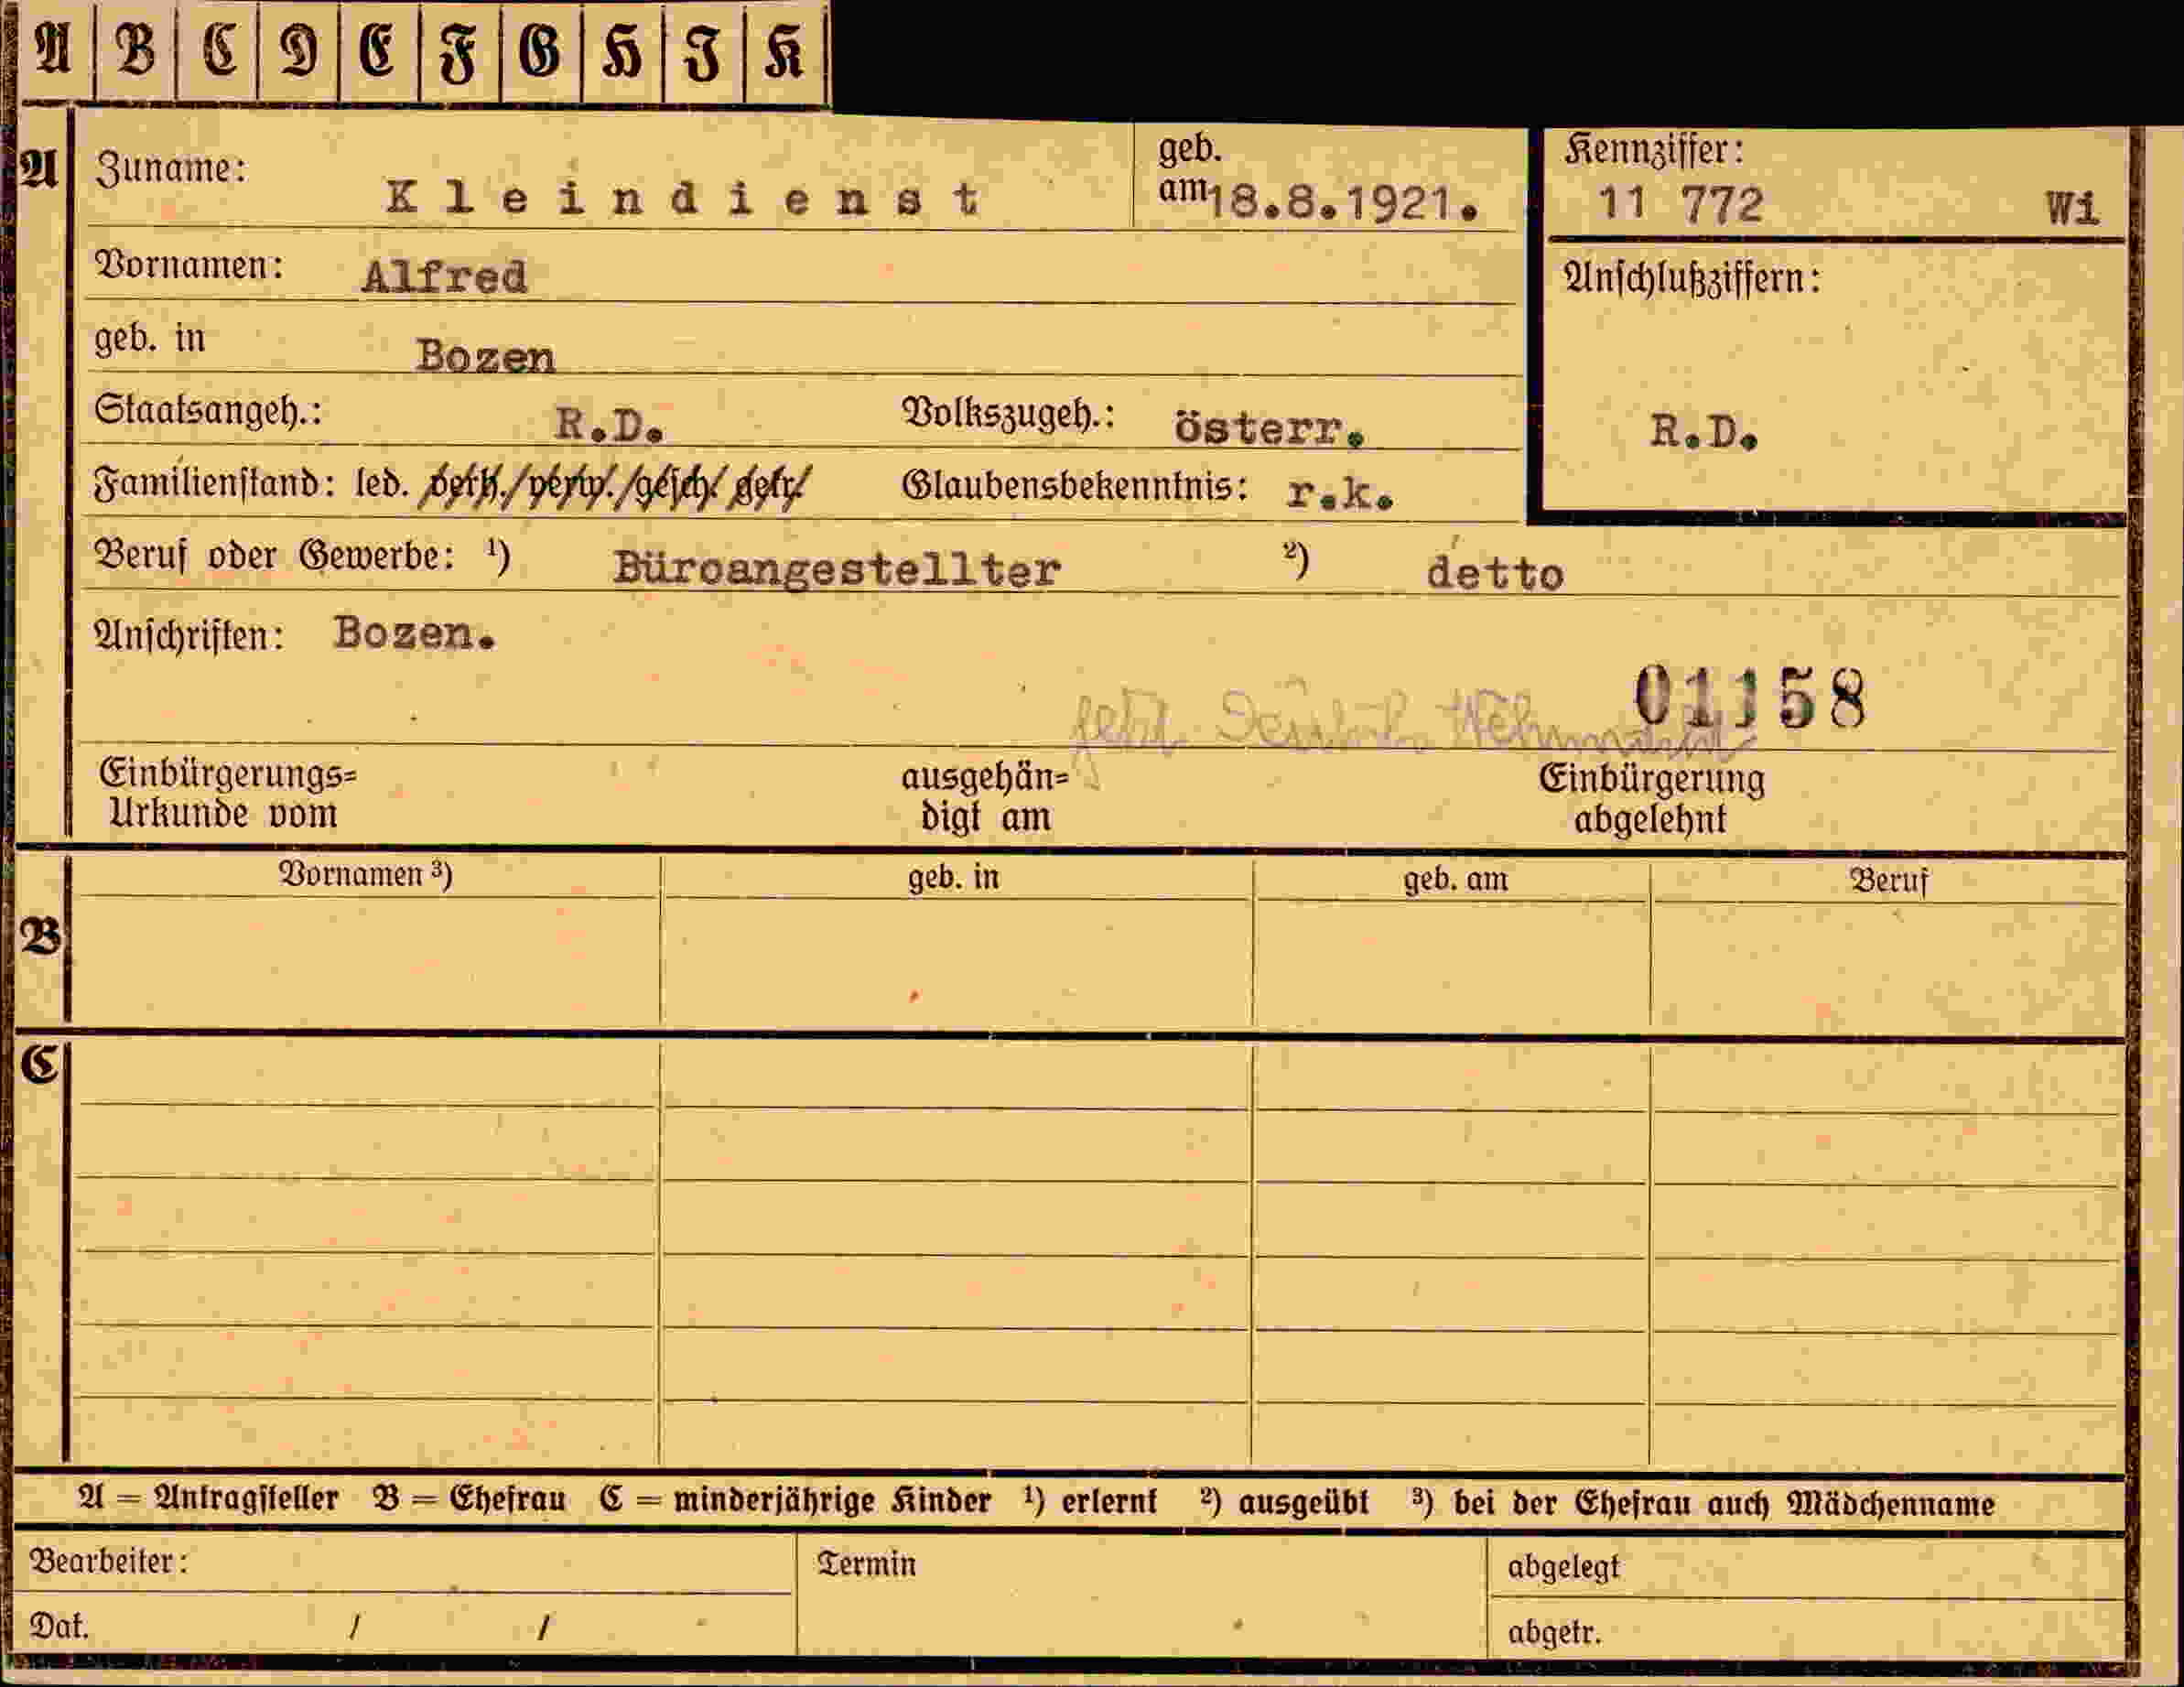 A B C D E F G H I K
A Zuname: Kleindienst geb. am 18.8.1921. Kennziffer: 11 772 Wi
Vornamen: Alfred Anschlußziffern:
geb. in Bozen
Staatsangeh.: R.D. Volkszugeh.: österr. R.D.
Familienstand: led. verh./verw./gesch./getr. Glaubensbekenntnis: r.k.
Beruf oder Gewerbe: ¹) Büroangestellter ²) detto
Anschriften: Bozen.
01158
Einbürgerungs= ausgehän= Einbürgerung
Urkunde vom digt am abgelehnt
Vornamen ³) geb. in geb. am Beruf
B
C
A = Antragsteller B = Ehefrau C = minderjährige Kinder ¹) erlernt ²) ausgeübt ³) bei der Ehefrau auch Mädchenname
Bearbeiter: Termin abgelegt
Dat. / / abgetr.